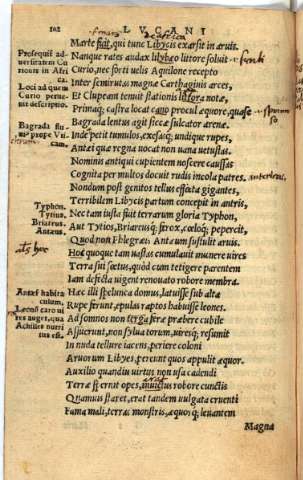 102 LVCANI
Marte fuit, qui tunc Libycis exarsit in aruis.
Nanque rates audax libybæo litore soluit
Curio, nec forti uelis Aquilone recepto
Inter semirutas magnæ Carthaginis arces,
Et Clupeam tenuit stationis litora notæ,
Primaq; castra locat cano procul æquore, qua se
Bagrada lentus agit siccæ sulcator arenæ.
Inde petit tumulos, exesasq; undique rupes,
Antæi quæ regna uocat non uana uetustas.
Nominis antiqui cupientem noscere caussas
Cognita per multos docuit rudis incola patres.
Nondum post genitos tellus effœta gigantes,
Terribilem Libycis partum concepit in antris,
Nec tam iusta fuit terrarum gloria Typhon,
Aut Tytios, Briareusq; ferox, cœloq; pepercit,
Quod non Phlegræis Antæum sustulit aruis.
Hoc quoque tam uastas cumulauit munere uires
Terra sui fœtus, quòd cum tetigere parentem
Iam defecta uigent renouato robore membra.
Hæc illi spelunca domus, latuisse sub alta
Rupe ferunt, epulas raptos habuisse leones.
Ad somnos non terga feræ præbere cubile
Assuerunt, non sylua torum, uiresq; resumit
In nuda tellure iacens, periere coloni
Aruorum Libyes, pereunt quos appulit æquor.
Auxilio quandiu uirtus non usa cadendi
Terræ spernit opes, inuictus robore cunctis
Quamuis staret, erat tandem uulgata cruenti
Fama mali, terras monstris, æquorq; leuantem
Magna
Prosequit ad
uersitatem Cu
rionis in Afri
ca.
Loci ad quem
Curio perue-
nit descriptio.
Bagrada flu-
me prope Vti
cam.
Typhon.
Tytius.
Briareus.
Antæus.
Antæi habita
culum.
Leonū caro ui
res auget, qua
Achilles nutri
tus est.